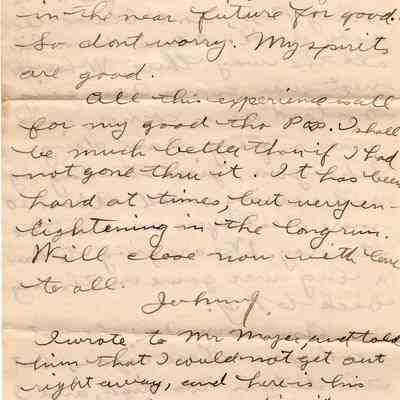 in the near future for good.
So dont worry. My spirits
are good.
All this experience is all
for my good tho Pop. I shall
be much better than if I had
not gone thru it. It has been
hard at times, but very en-
lightening in the long run.
Will close now with love
to all.
Johnny.
I wrote to Mr Mager, and told
him that I could not get out
right away, and here is his